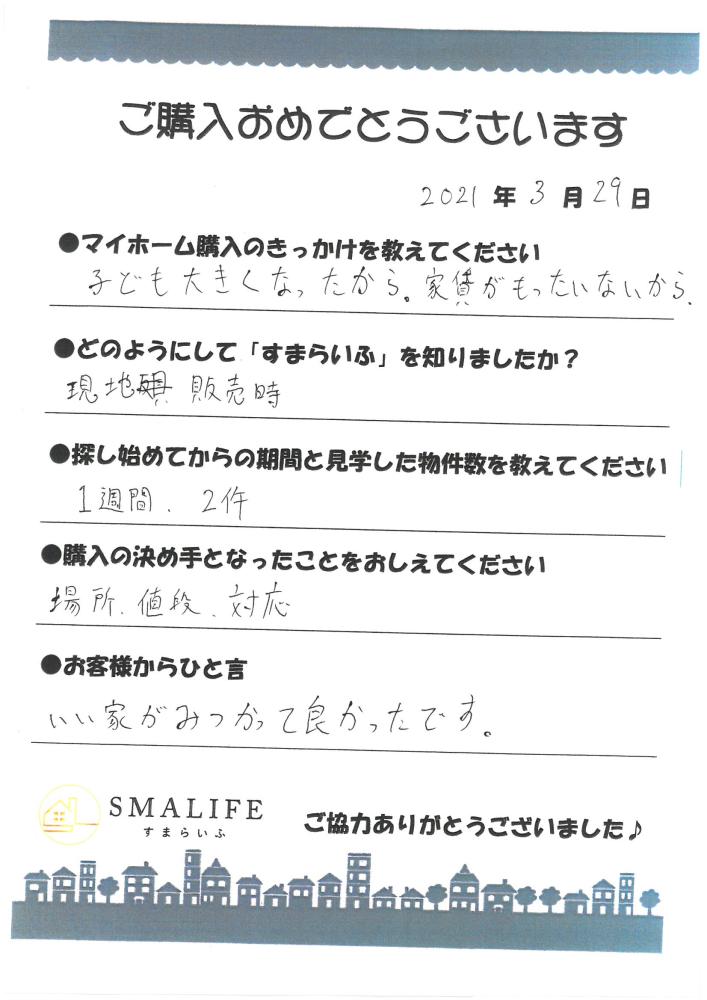 ご購入おめでとうございます
2021年3月29日
●マイホーム購入のきっかけを教えてください
子ども大きくなったから。家賃がもったいないから、
●どのようにして「すまらいふ」を知りましたか？
現地 販売時
●探し始めてからの期間と見学した物件数を教えてください
1週間、2件
●購入の決め手となったことをおしえてください
場所、値段、対応
●お客様からひと言
いい家がみつかって良かったです。
SMALIFE
すまらいふ
ご協力ありがとうございました♪